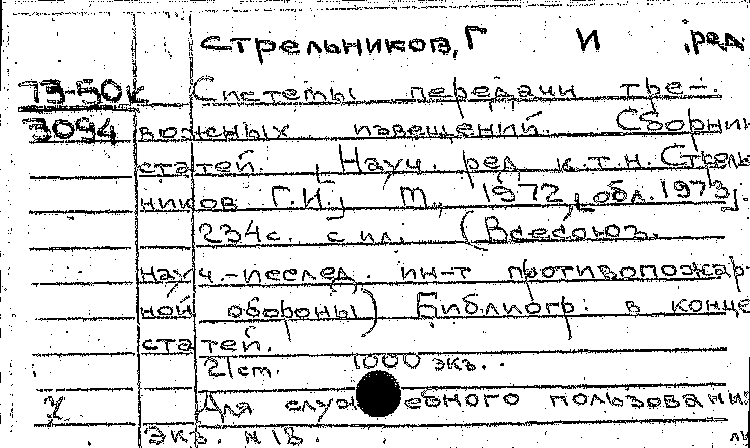 Стрельников, Г И , ред.
73-50к Системы передачи тре-
3094 вожных извещений. Сборник
статей. [Науч. ред. к.т.н. Стрель
ников Г.И.] М., 1972, [обл. 1973].
234с. с ил. (Всесоюз.
науч.-исслед. ин-т противопожар-
ной обороны) Библиогр: в конце
статей.
21 ст. 1000 экз.
Для служебного пользования
Экз. N 18.